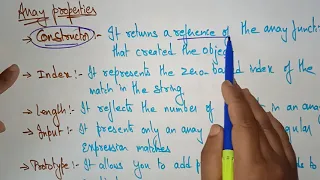 Array properties
Constructor :- It returns a reference of the array funct:-
that created the object
→ Index :- It represents the zero-based index of the
match in the string
→ Length :- It reflects the number of in an
→ Input :- It presents only an
Expression matches
→ Prototype :- It allows you to add